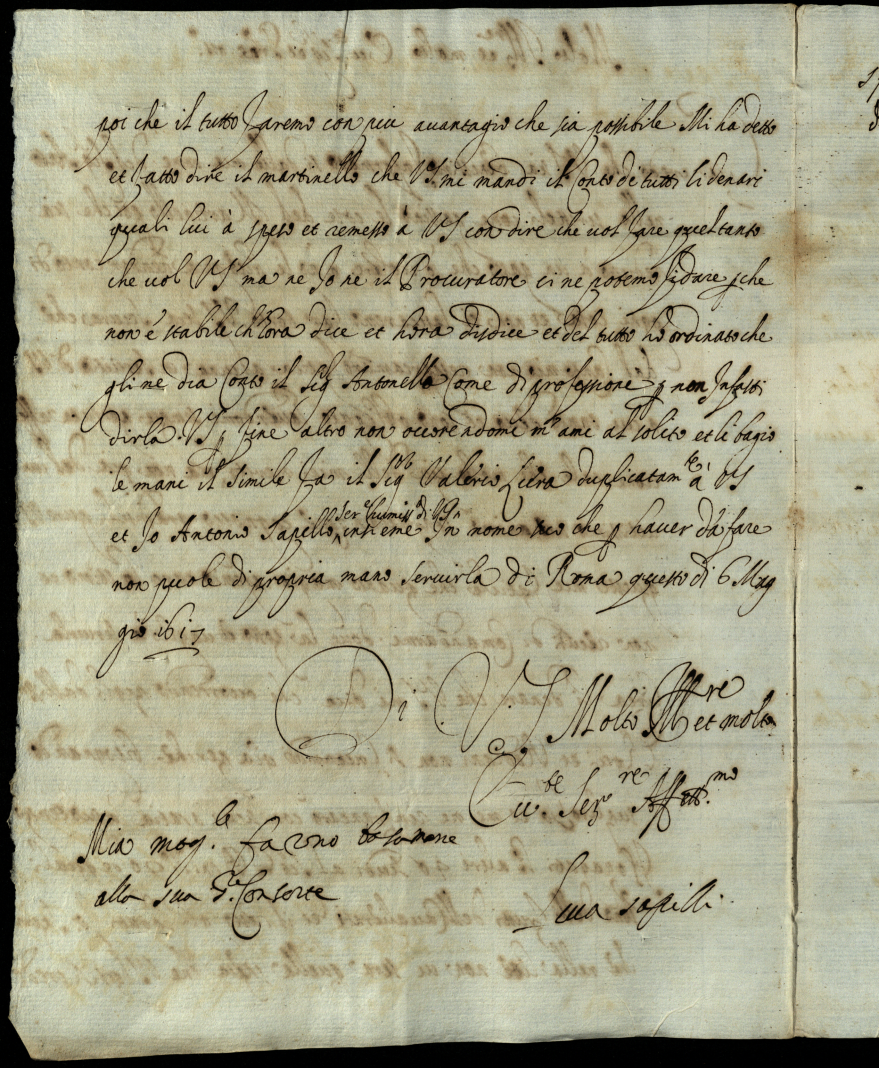 poi che il tutto faremo con piu auantagio che sia possibile Mi ha detto
et fatto dire il martinello che VS mi mandi il Conto de tutti li denari
quali lui à speso et remesso à VS con dire che vol fare quel tanto
che vol VS ma ne Jo ne il Procuratore ci ne potemo fidare p che
non é stabile ch hora dice et hora disdice et del tutto hò ordinato che
gli ne dia Conto il Sig Antonello Come di professione p non Infasti
dirla VS p fine altro non occorendomi m'ami al solito et li bagio
le mani il simile fa il Sigre Valerio Liera duplicatamte à VS
et Jo Antonio Sapillo insieme In nome suo che p hauer dà fare
Serre humiss di VS
non puole di propria mano seruirla di Roma questo di 6 Mag
gio 1617
Di VS Molto Illre et molto
Serre Affettmo
Mia mogle fa uno basamane
alla sua Sra Consorte
Luca sapilli